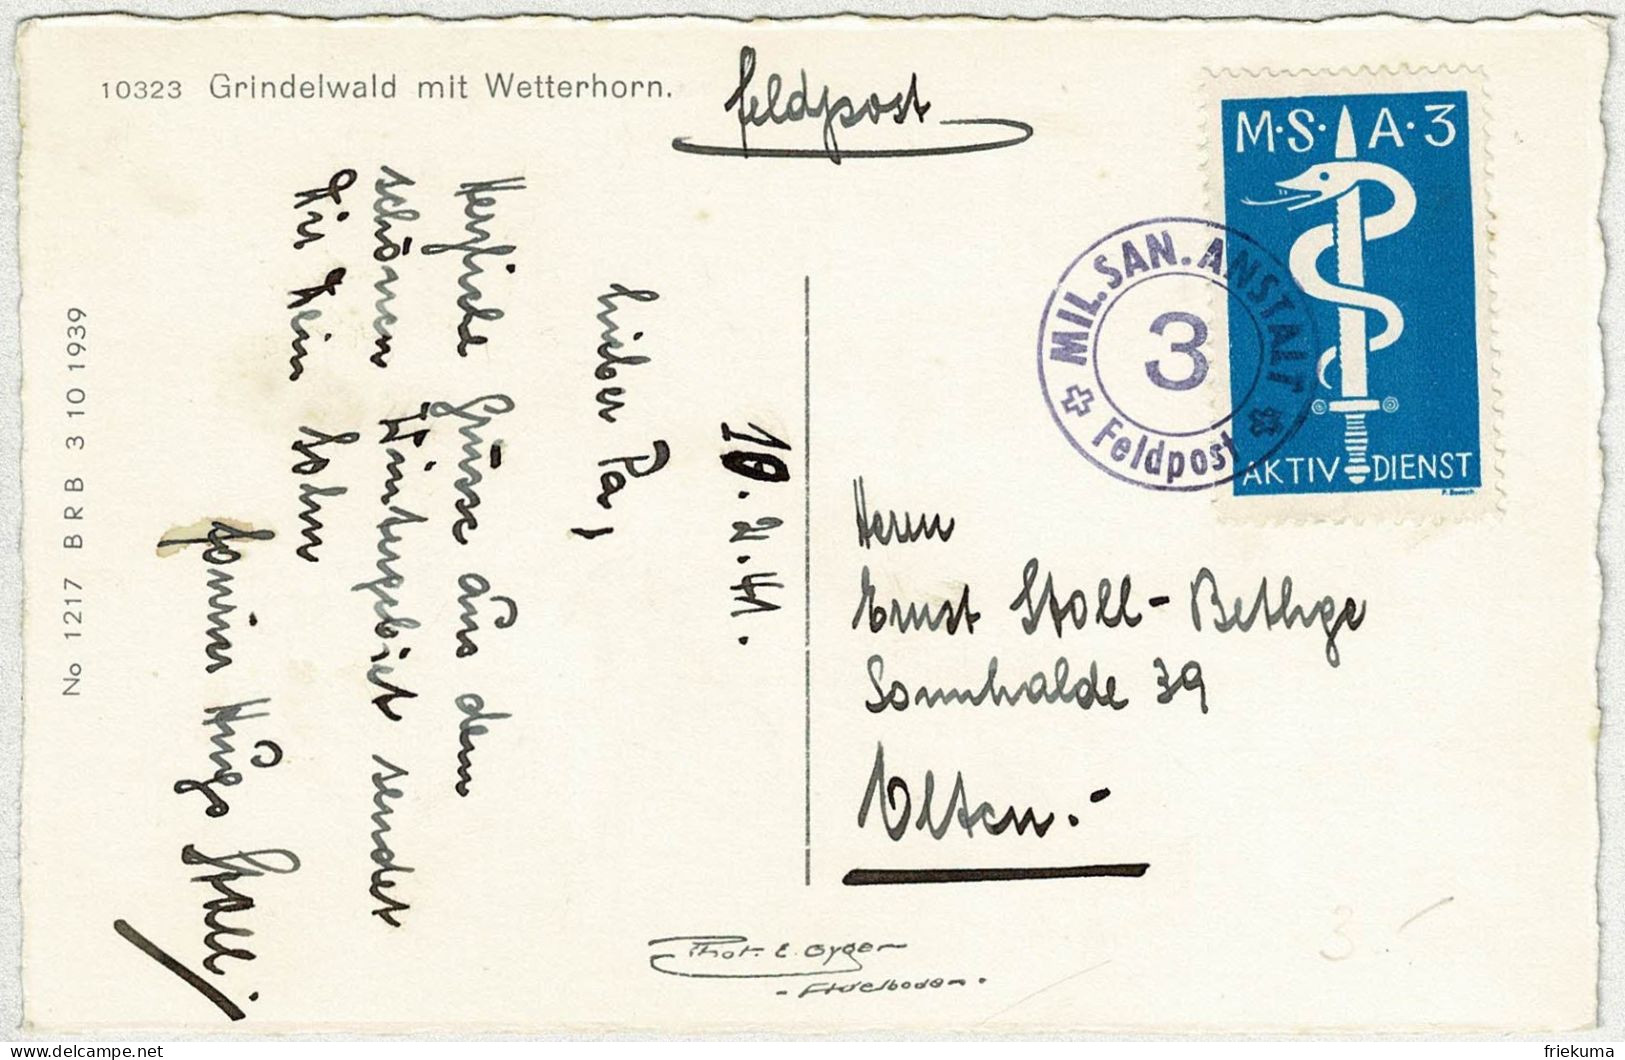 10323 Grindelwald mit Wetterhorn.
Feldpost
M·S·A·3
AKTIV DIENST
MIL. SAN. ANSTALT
3
Feldpost
10.2.41.
Lieber Pa,
Herzliche Grüsse aus dem
schönen Wintergebiet sendet
Dir Dein Sohn
Hugo Stoll
Herrn
Ernst Stoll-Bethge
Sonnhalde 39
Olten.-
No 1217 BRB 3 10 1939
Phot. E. Gyger
- Adelboden -
3.-
delcampe.net
friekuma